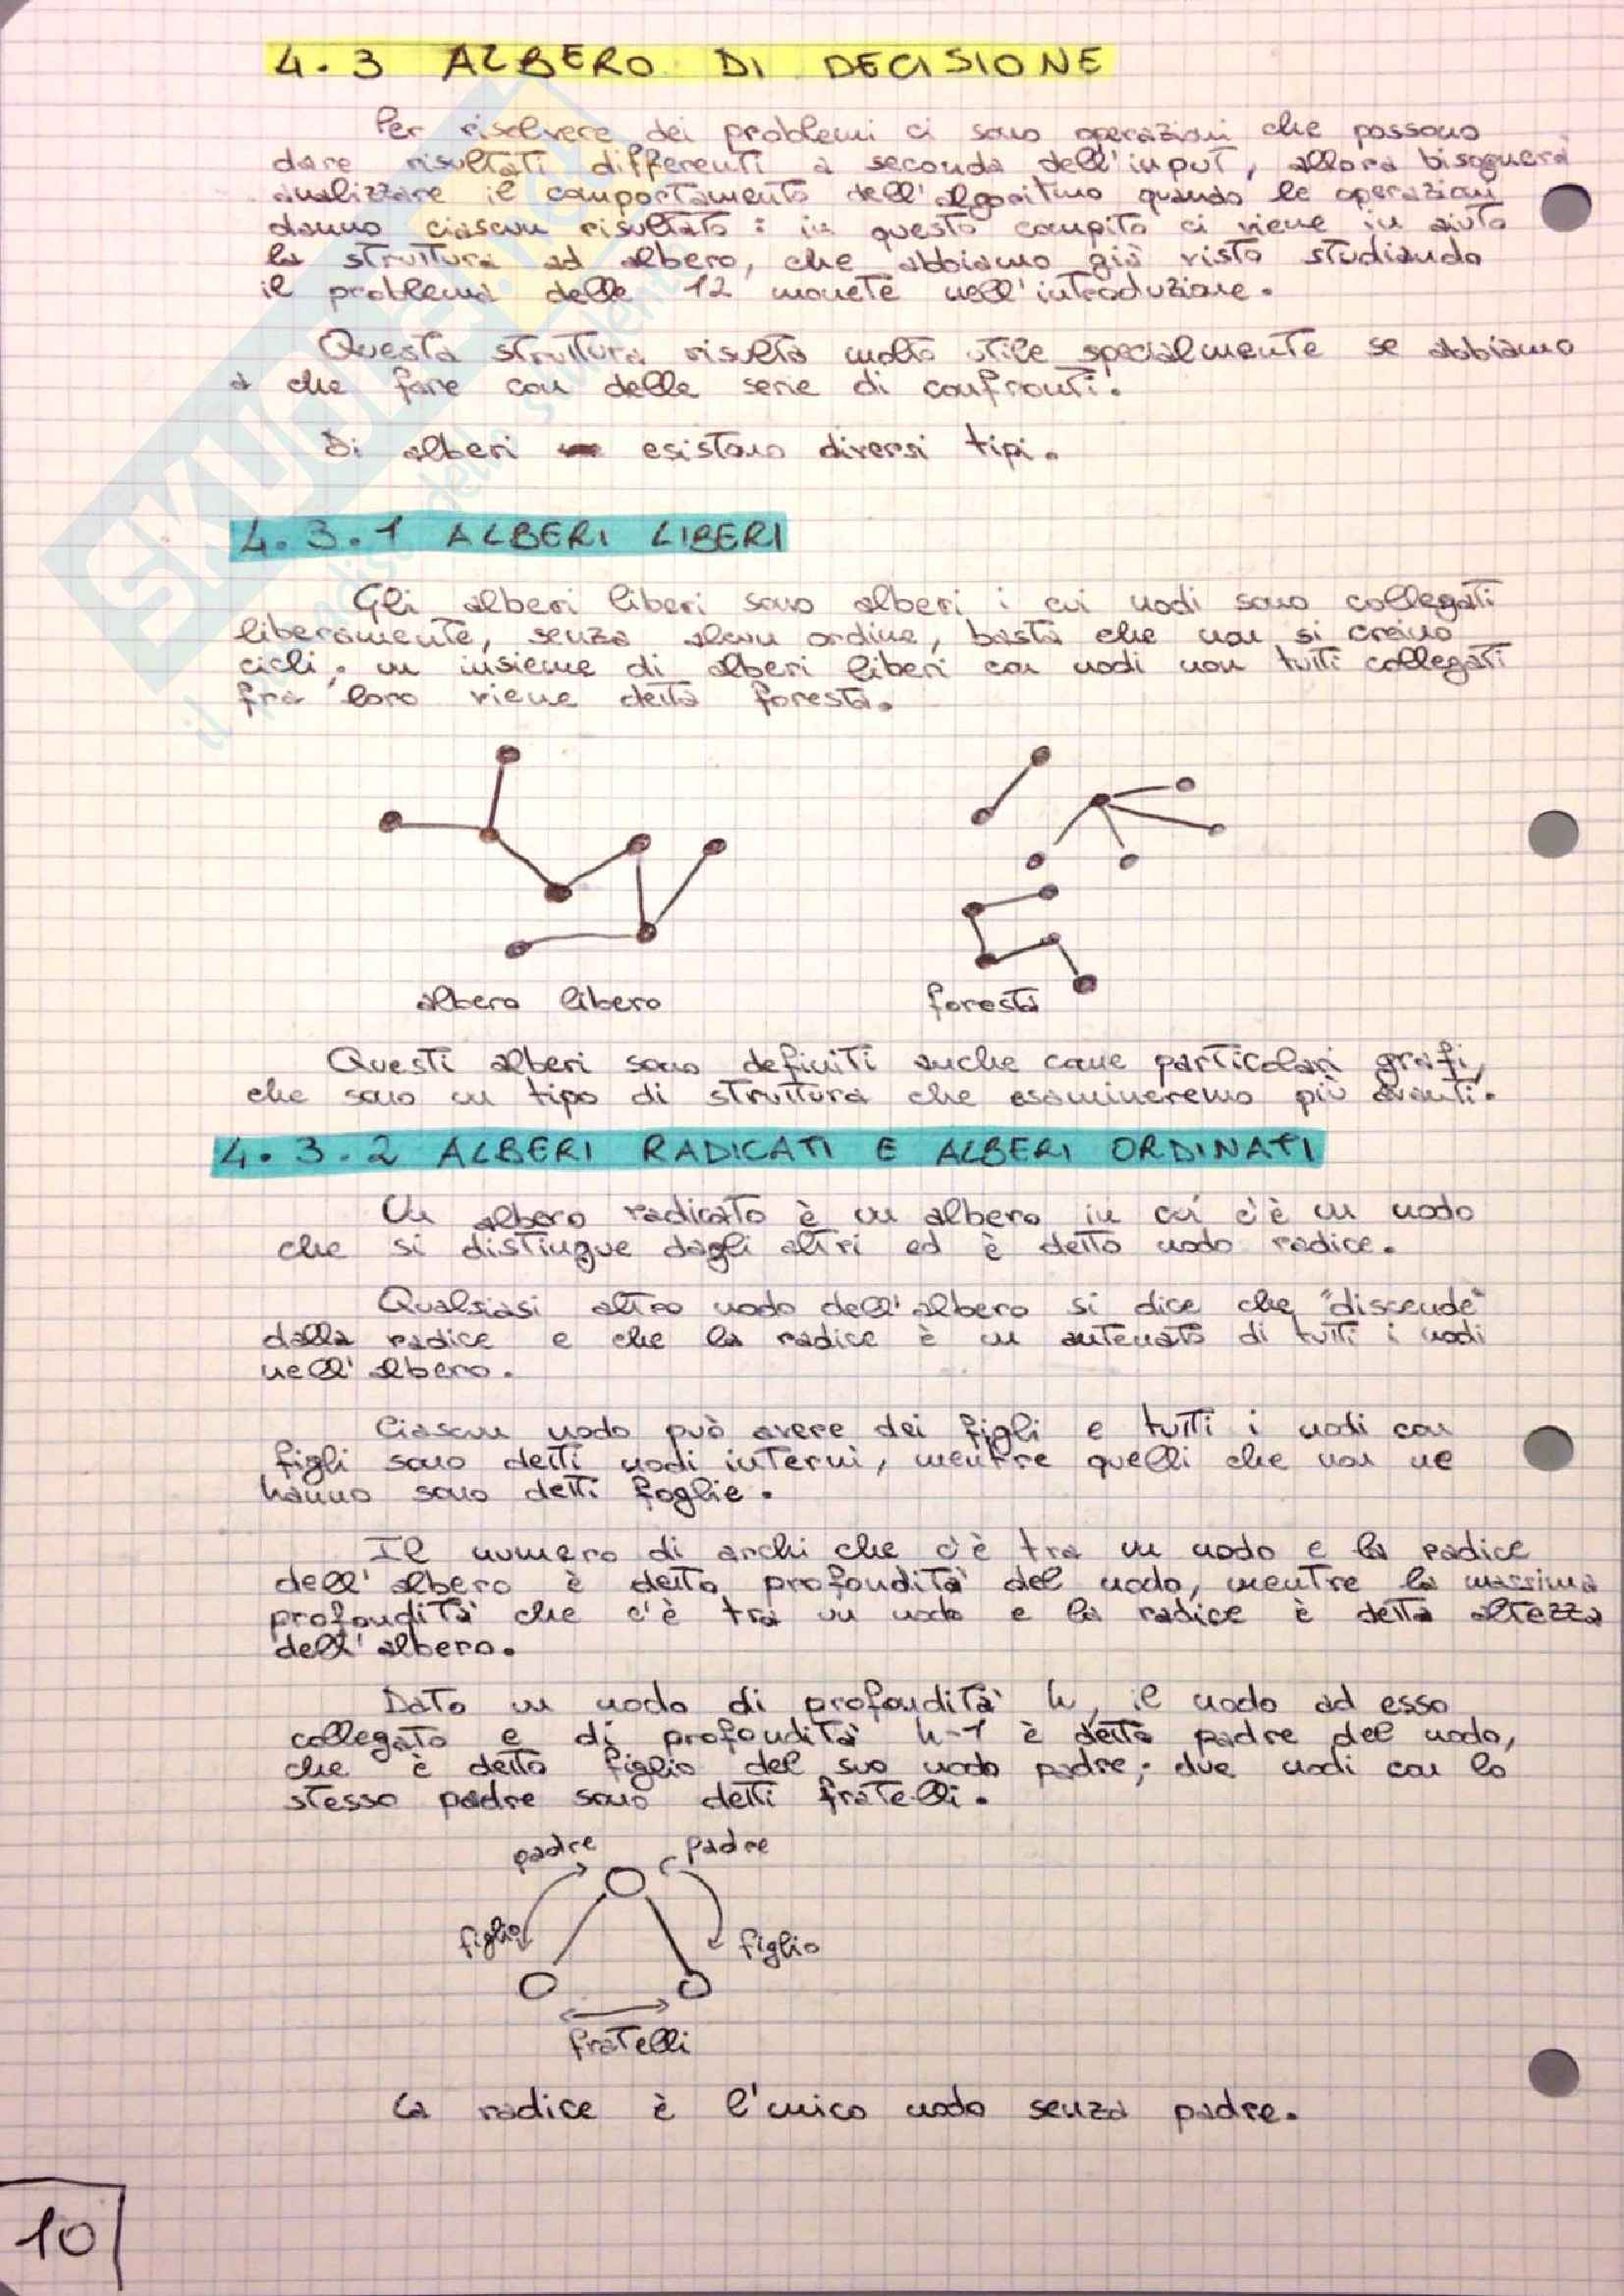 4.3 ALBERO DI DECISIONE
Per risolvere dei problemi ci sono operazioni che possono
dare risultati differenti a seconda dell'input, allora bisognerà
analizzare il comportamento dell'algoritmo quando le operazioni
danno ciascun risultato: in questo compito ci viene in aiuto
la struttura ad albero, che abbiamo già visto studiando
il problema delle 12 monete nell'introduzione.
Questa struttura risulta molto utile specialmente se abbiamo
a che fare con delle serie di confronti.
Di alberi esistono diversi tipi.
4.3.1 ALBERI LIBERI
Gli alberi liberi sono alberi i cui nodi sono collegati
liberamente, senza alcun ordine, basta che non si creino
cicli; un insieme di alberi liberi con nodi non tutti collegati
fra loro viene detta foresta.
albero libero
foresta
Questi alberi sono definiti anche come particolari grafi,
che sono un tipo di struttura che esamineremo più avanti.
4.3.2 ALBERI RADICATI E ALBERI ORDINATI
Un albero radicato è un albero in cui c'è un nodo
che si distingue dagli altri ed è detto nodo radice.
Qualsiasi altro nodo dell'albero si dice che "discende"
dalla radice e che la radice è un antenato di tutti i nodi
nell'albero.
Ciascun nodo può avere dei figli e tutti i nodi con
figli sono detti nodi interni, mentre quelli che non ne
hanno sono detti foglie.
Il numero di archi che c'è tra un nodo e la radice
dell'albero è detto profondità del nodo, mentre la massima
profondità che c'è tra un nodo e la radice è detta altezza
dell'albero.
Dato un nodo di profondità h, il nodo ad esso
collegato e di profondità h-1 è detto padre del nodo,
che è detto figlio del suo nodo padre; due nodi con lo
stesso padre sono detti fratelli.
padre padre
figlio figlio
fratelli
La radice è l'unico nodo senza padre.
10